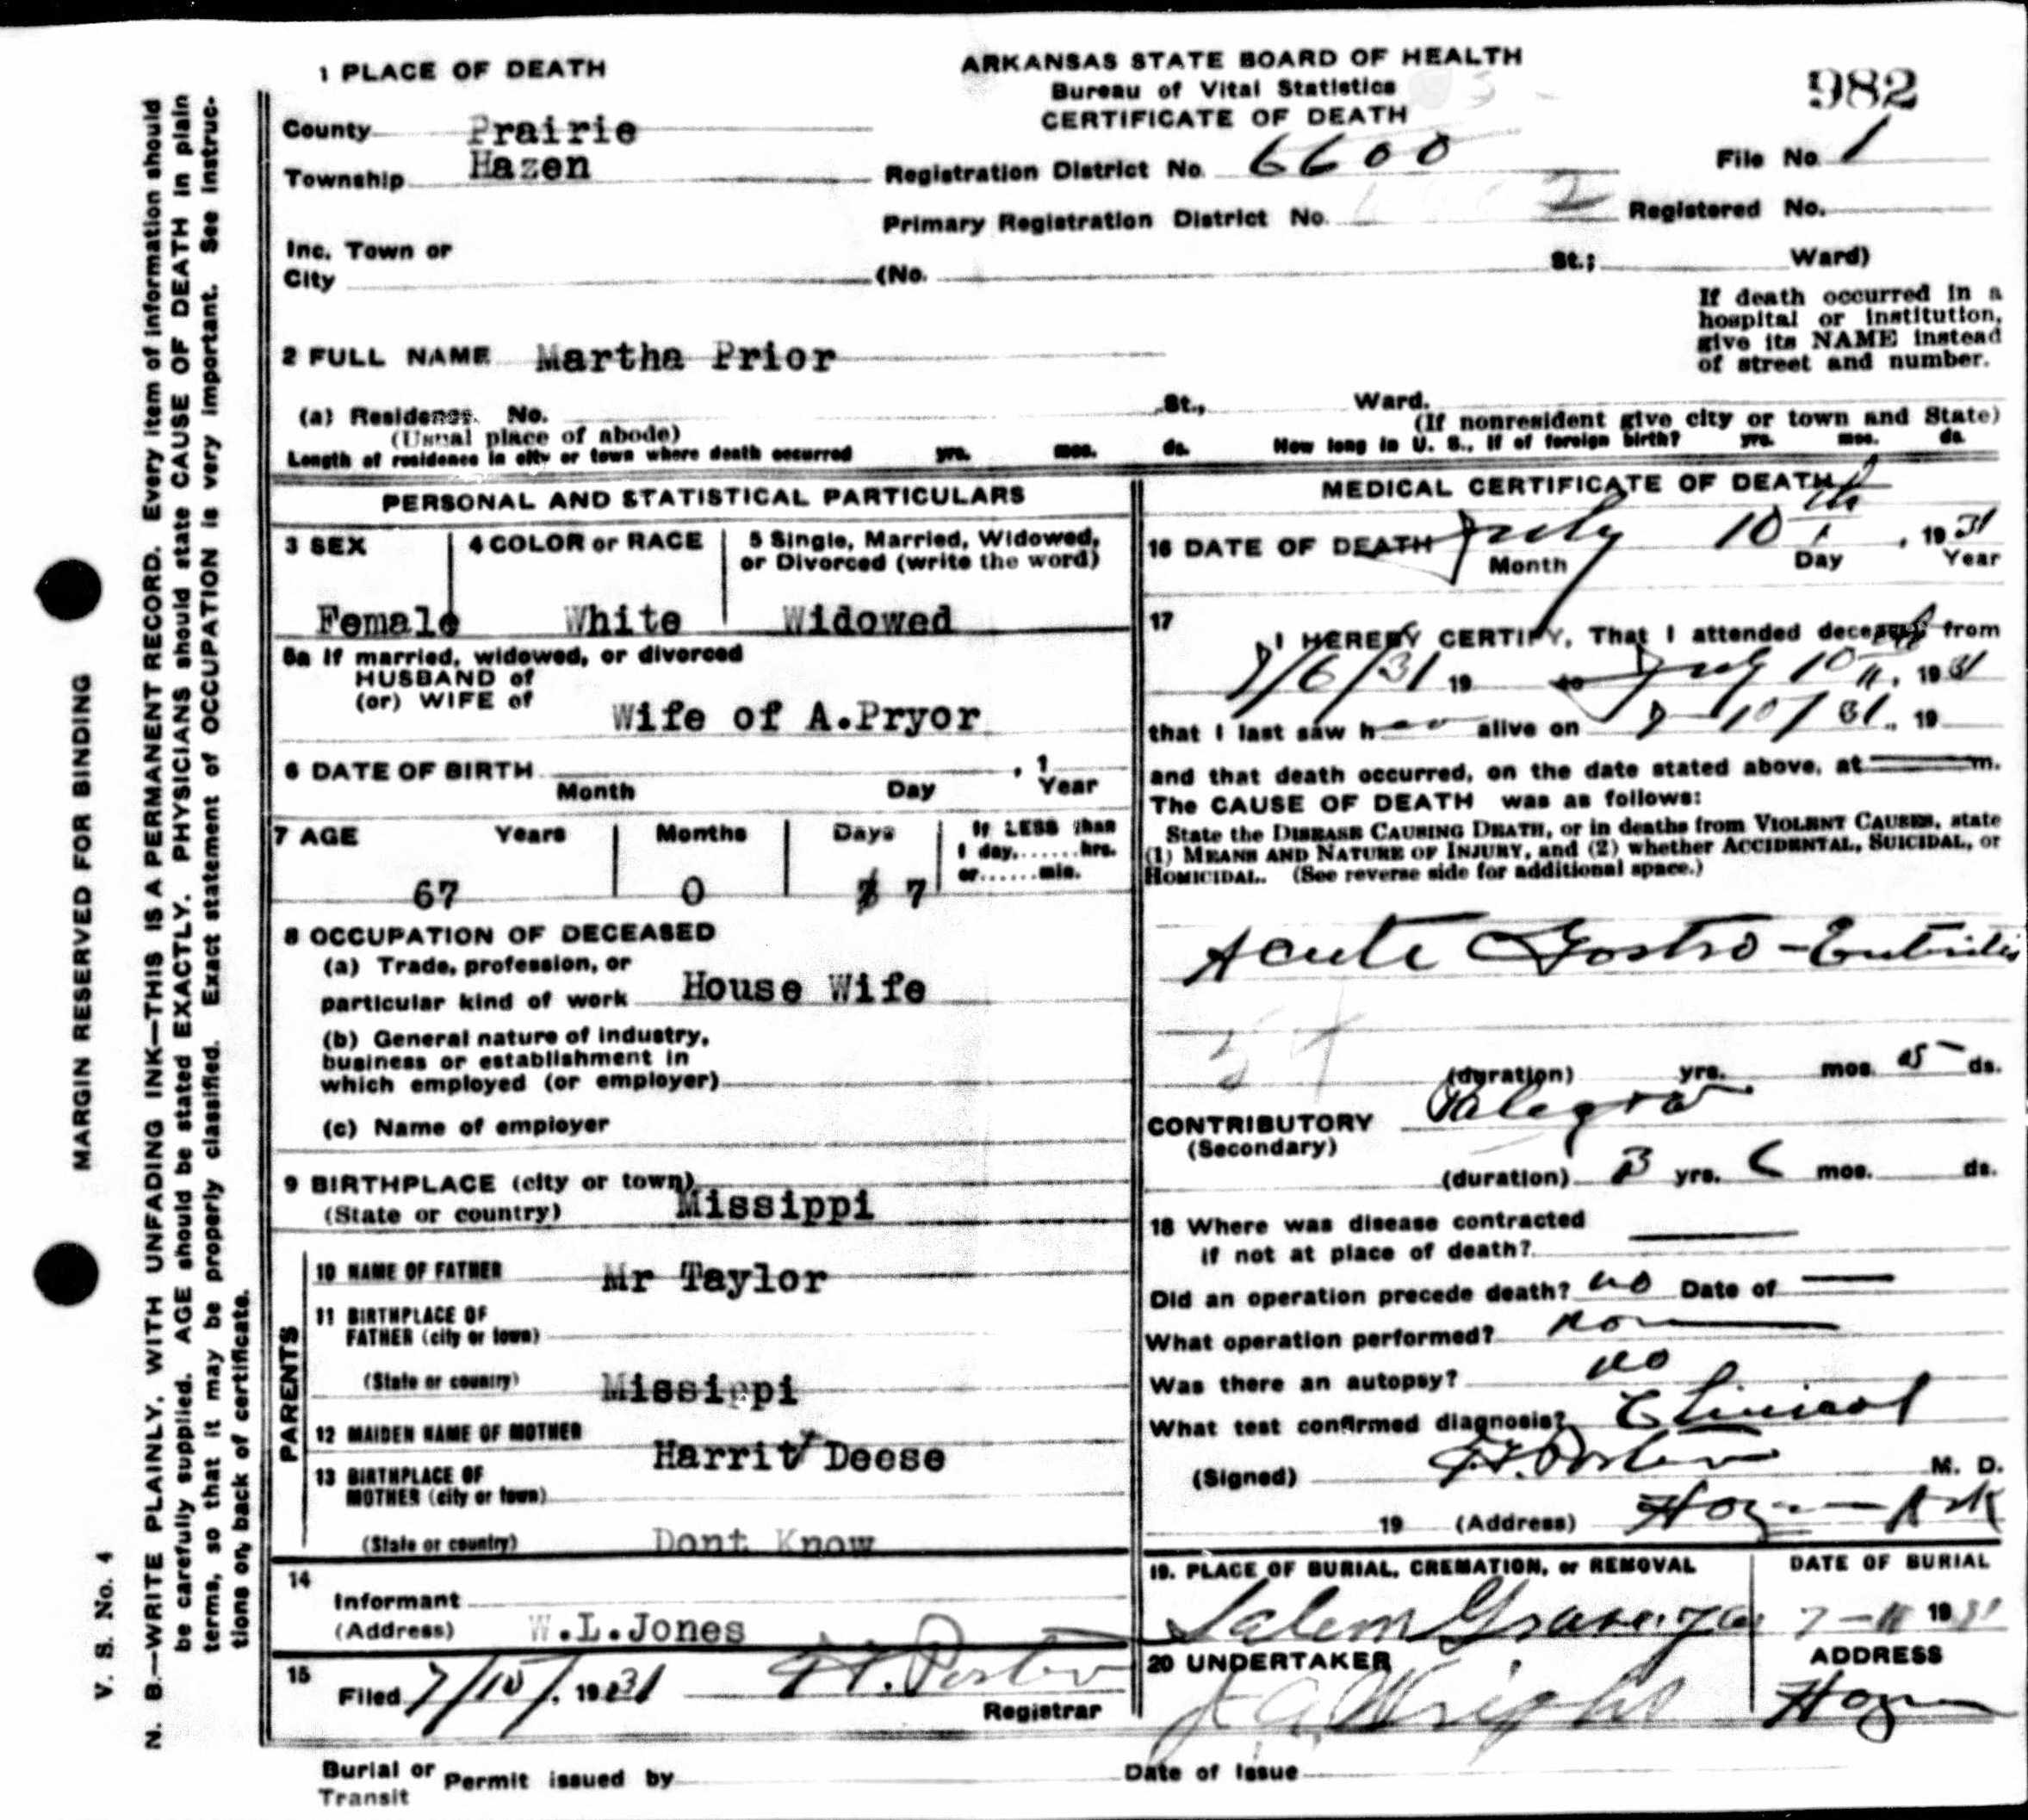 982
1 PLACE OF DEATH
ARKANSAS STATE BOARD OF HEALTH
Bureau of Vital Statistics
CERTIFICATE OF DEATH
County Prairie
Township Hazen
Registration District No. 6600 File No. 1
Primary Registration District No. 2 Registered No.
Inc. Town or
City (No. St.; Ward)
If death occurred in a
hospital or institution,
give its NAME instead
of street and number.
2 FULL NAME Martha Prior
(a) Residence. No. St., Ward.
(Usual place of abode) (If nonresident give city or town and State)
Length of residence in city or town where death occurred yrs. mos. ds. How long in U. S., if of foreign birth? yrs. mos. ds.
PERSONAL AND STATISTICAL PARTICULARS
3 SEX 4 COLOR or RACE 5 Single, Married, Widowed,
or Divorced (write the word)
Female White Widowed
5a If married, widowed, or divorced
HUSBAND of
(or) WIFE of
Wife of A.Pryor
6 DATE OF BIRTH , 1
Month Day Year
7 AGE Years Months Days If LESS than
1 day,......hrs.
or......min.
67 0 7
8 OCCUPATION OF DECEASED
(a) Trade, profession, or
particular kind of work House Wife
(b) General nature of industry,
business or establishment in
which employed (or employer)
(c) Name of employer
9 BIRTHPLACE (city or town)
(State or country) Missippi
PARENTS
10 NAME OF FATHER Mr Taylor
11 BIRTHPLACE OF
FATHER (city or town)
(State or country) Missippi
12 MAIDEN NAME OF MOTHER
Harrit Deese
13 BIRTHPLACE OF
MOTHER (city or town)
(State or country) Dont Know
14
Informant
(Address) W.L.Jones
15
Filed 7/10/, 1931
Registrar
MEDICAL CERTIFICATE OF DEATH
16 DATE OF DEATH July 10th, 1931
Month Day Year
17
I HEREBY CERTIFY, That I attended deceased from
7/6/31 19 to July 10th, 1931
that I last saw her alive on 7-10/31., 19
and that death occurred, on the date stated above, at m.
The CAUSE OF DEATH was as follows:
State the DISEASE CAUSING DEATH, or in deaths from VIOLENT CAUSES, state
(1) MEANS AND NATURE OF INJURY, and (2) whether ACCIDENTAL, SUICIDAL, or
HOMICIDAL. (See reverse side for additional space.)
Acute Gastro-Enteritis
(duration) yrs. mos. 5 ds.
CONTRIBUTORY Pelegra
(Secondary)
(duration) 3 yrs. 6 mos. ds.
18 Where was disease contracted
if not at place of death?
Did an operation precede death? no Date of
What operation performed? None
Was there an autopsy? no
What test confirmed diagnosis? Clinical
(Signed) Porter M. D.
19 (Address) Hazen Ark
19. PLACE OF BURIAL, CREMATION, or REMOVAL DATE OF BURIAL
Salem Graveyard 7-11 1931
20 UNDERTAKER ADDRESS
Wright Hazen
Burial or
Transit Permit issued by Date of Issue
MARGIN RESERVED FOR BINDING
V. S. No. 4
N. B.—WRITE PLAINLY, WITH UNFADING INK—THIS IS A PERMANENT RECORD. Every item of information should
be carefully supplied. AGE should be stated EXACTLY. PHYSICIANS should state CAUSE OF DEATH in plain
terms, so that it may be properly classified. Exact statement of OCCUPATION is very important. See instruc-
tions on back of certificate.